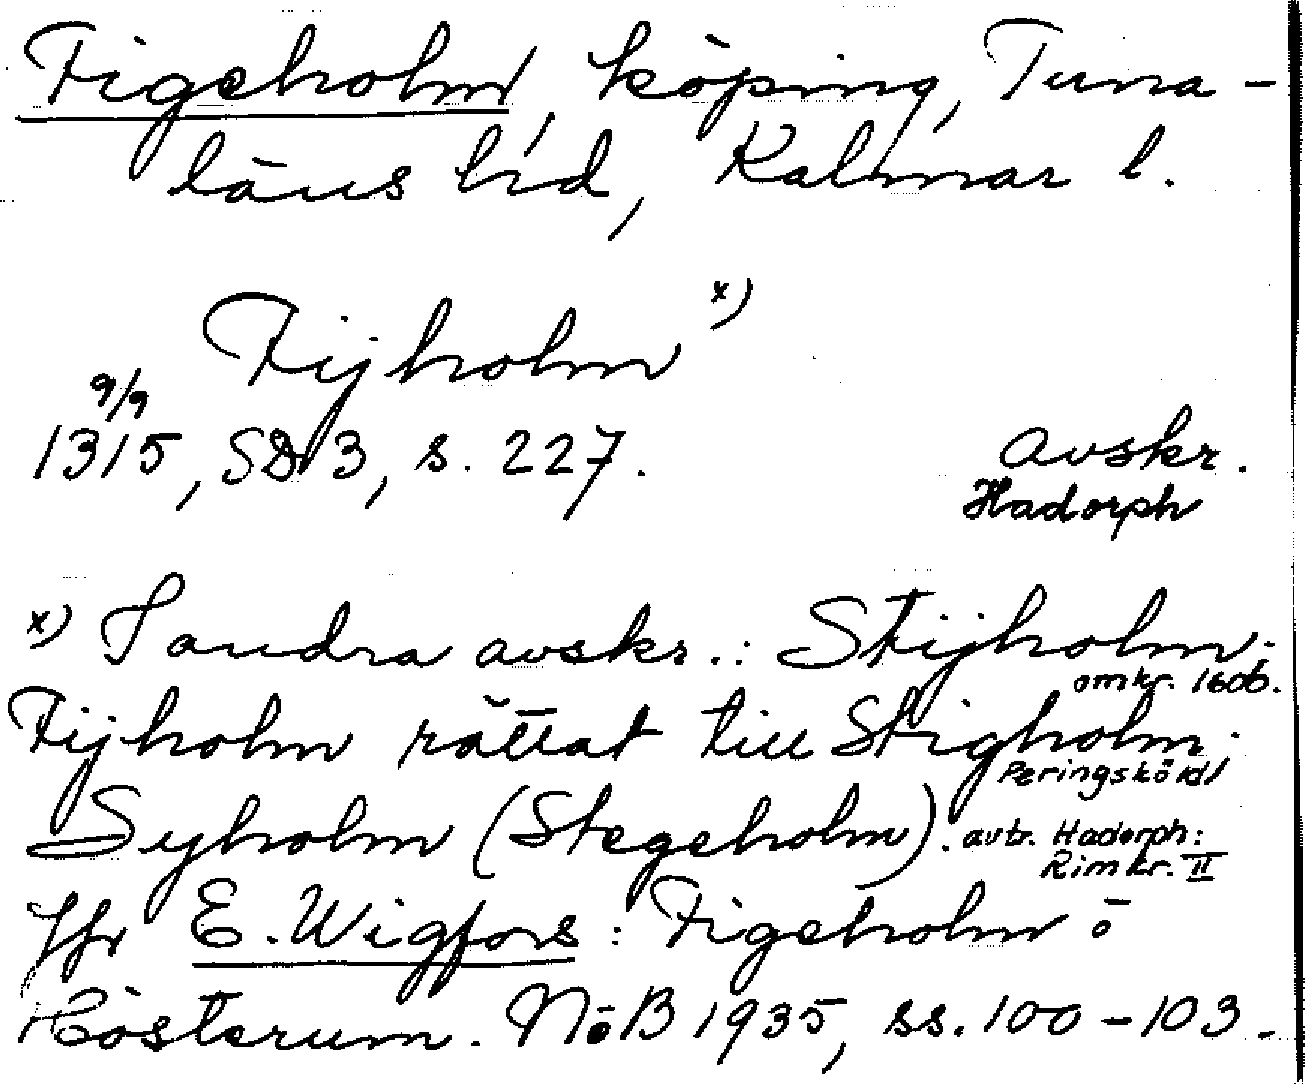 Figeholm, köping, Tuna-
läns hd, Kalmar l.
Fijholm x)
9/9
1315, SD 3, s. 227. avskr.
Hadorph
x) I andra avskr.: Stijholm.
omkr. 1606.
Fijholm rättat till Stigholm.
Peringsköld
Syholm (Stegeholm). avtr. Hadorph:
Rimkr. II
Jfr E. Wigfors: Figeholm o
Hösterum. NoB 1935, ss. 100-103.